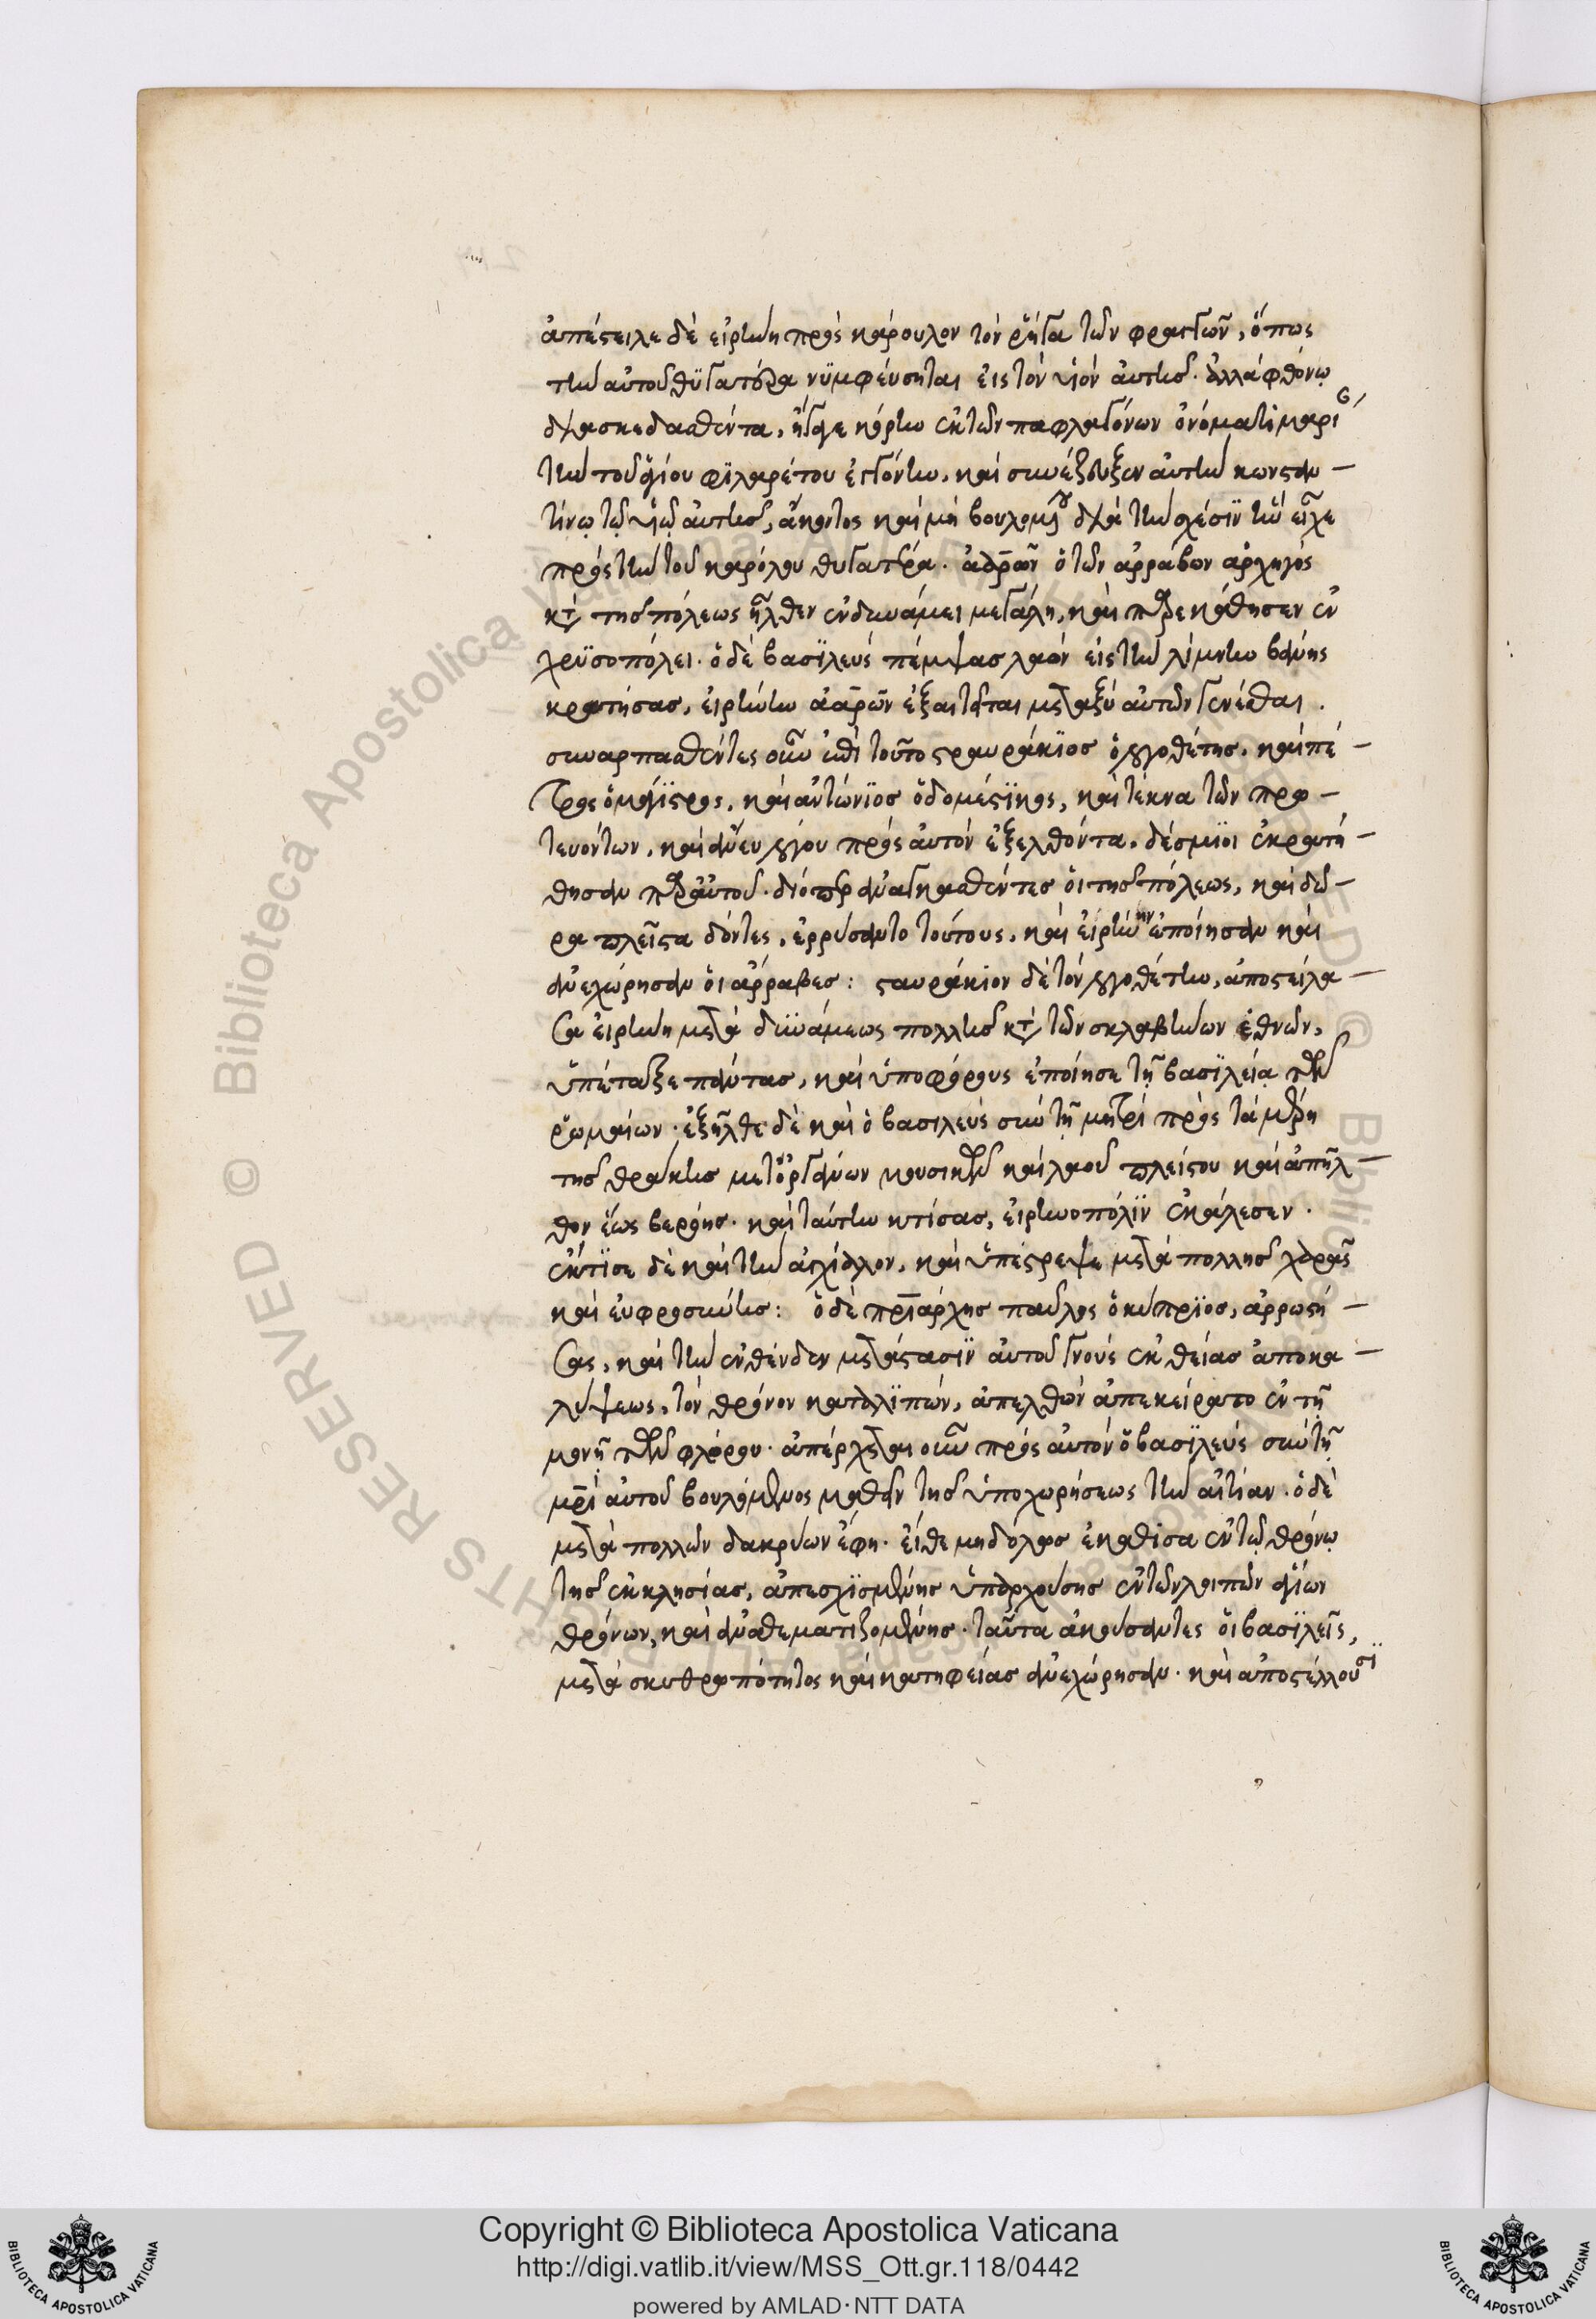 ἀπέστειλε δὲ εἰρήνη πρὸς κάρουλον τὸν ῥήγα τῶν φραγγῶν, ὅπως
τὴν αὐτοῦ θϋγατέρα νϋμφεύσηται εἰς τὸν υἱὸν αὐτῆς. ἀλλὰ φθόνω
διασκεδασθέντα, ἤγαγε κόρην ἐκ τῶν παφλαγόνων ὀνόματι μαρί
τὴν τοῦ ἁγίου φϊλαρέτου ἐγγόνην, καὶ συνέζευξεν αὐτὴν κωνσταν-
τίνῳ τῷ υἱῷ αὐτῆς, ἄκοντος καὶ μὴ βουλομένου διὰ τὴν σχέσϊν ἣν εἶχε
πρὸς τὴν τοῦ καρόλου θυγατέρα. ἀαρὼν ὁ τῶν ἀρράβων ἀρχηγὸς
κατὰ τῆς πόλεως ἦλθεν ἐν δυνάμει μεγάλη, καὶ παρεκάθησεν ἐν
χρϋσοπόλει. ὁ δὲ βασϊλεὺς πέμψας λαὸν εἰς τὴν λίμνην βάνης
κρατήσας, εἰρήνην ἀαρὼν ἐξαιτεῖται μεταξὺ αὐτῶν γενέσθαι.
συναρπασθέντες οὖν ἐπὶ τοῦτο σταυράκϊος ὁ λογοθέτης, καὶ πέ-
τρος ὁ μάγϊστρος, καὶ ἀντώνϊος ὁ δομέστϊκος, καὶ τέκνα τῶν πρω-
τευόντων, καὶ ἄνευ λόγου πρὸς αὐτὸν ἐξελθόντα, δέσμϊοι ἐκρατή-
θησαν παρ' αὐτοῦ. διόπερ ἀναγκασθέντες οἱ τῆς πόλεως, καὶ δῶ-
ρα πλεῖστα δόντες, ἐρρύσαντο τούτους, καὶ εἰρήνην ἐποίησαν καὶ
ἀνεχώρησαν οἱ ἄρραβες: σταυράκιον δὲ τὸν λογοθέτην, ἀποστείλα-
σα εἰρήνη μετὰ δϋνάμεως πολλῆς κατὰ τῶν σκλαβήνων ἐθνῶν,
ὑπέταξε πάντας, καὶ ὑποφόρους ἐποίησε τῇ βασϊλείᾳ τῶν
ῥωμαίων. ἐξῆλθε δὲ καὶ ὁ βασιλεὺς σὺν τῇ μητρὶ πρὸς τὰ μέρη
τῆς θράκης μετὰ ὀργάνων μουσικῶν καὶ λαοῦ πλείστου καὶ ἀπῆλ-
θον ἕως βερόης. καὶ ταύτην κτίσας, εἰρηνοπόλϊν ἐκάλεσεν.
ἔκτϊσε δὲ καὶ τὴν ἀγχίαλον, καὶ ὑπέστρεψε μετὰ πολλῆς χαρᾶς
καὶ εὐφροσύνης: ὁ δὲ πατριάρχης παῦλος ὁ κύπρϊος, ἀρρωστή-
σας, καὶ τὴν ἐνθένδεν μετάστασϊν αὐτοῦ γνοὺς ἐκ θείας ἀποκα-
λύψεως, τὸν θρόνον καταλϊπὼν, ἀπελθὼν ἀπεκείρατο ἐν τῇ
μονῇ τῶν φλώρου. ἀπέρχεται οὖν πρὸς αὐτὸν ὁ βασϊλεὺς σὺν τῇ
μητρὶ αὐτοῦ βουλόμενος μαθεῖν τῆς ὑποχωρήσεως τὴν αἰτίαν. ὁ δὲ
μετὰ πολλῶν δακρύων ἔφη. εἴθε μηδόλως ἐκάθισα ἐν τῷ θρόνῳ
τῆς ἐκκλησίας, ἀπεσχϊσμένης ὑπαρχούσης ἐκ τῶν λοιπῶν ἁγίων
θρόνων, καὶ ἀναθεματιζομένης. ταῦτα ἀκούσαντες οἱ βασϊλεῖς,
μετὰ σκυθρωπότητος καὶ κατηφείας ἀνεχώρησαν. καὶ ἀποστέλλουσϊ
Copyright © Biblioteca Apostolica Vaticana
http://digi.vatlib.it/view/MSS_Ott.gr.118/0442
powered by AMLAD·NTT DATA